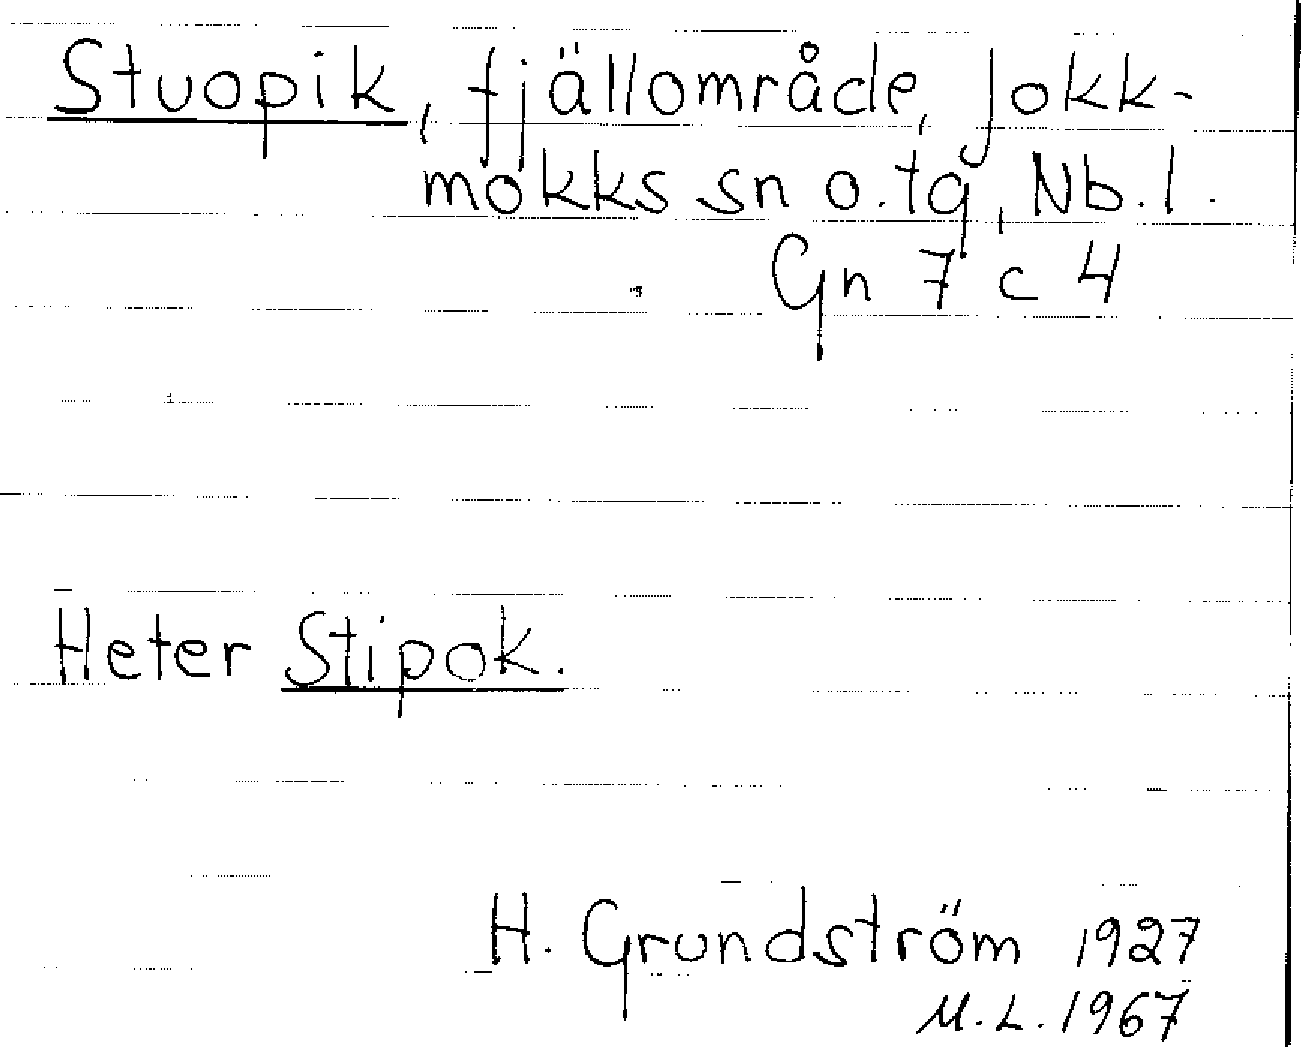 Stuopik, fjällområde, Jokk-
mokks sn o. tg, Nb. l.
Gn 7 c 4
Heter Stipok.
H. Grundström 1927
M.L. 1967